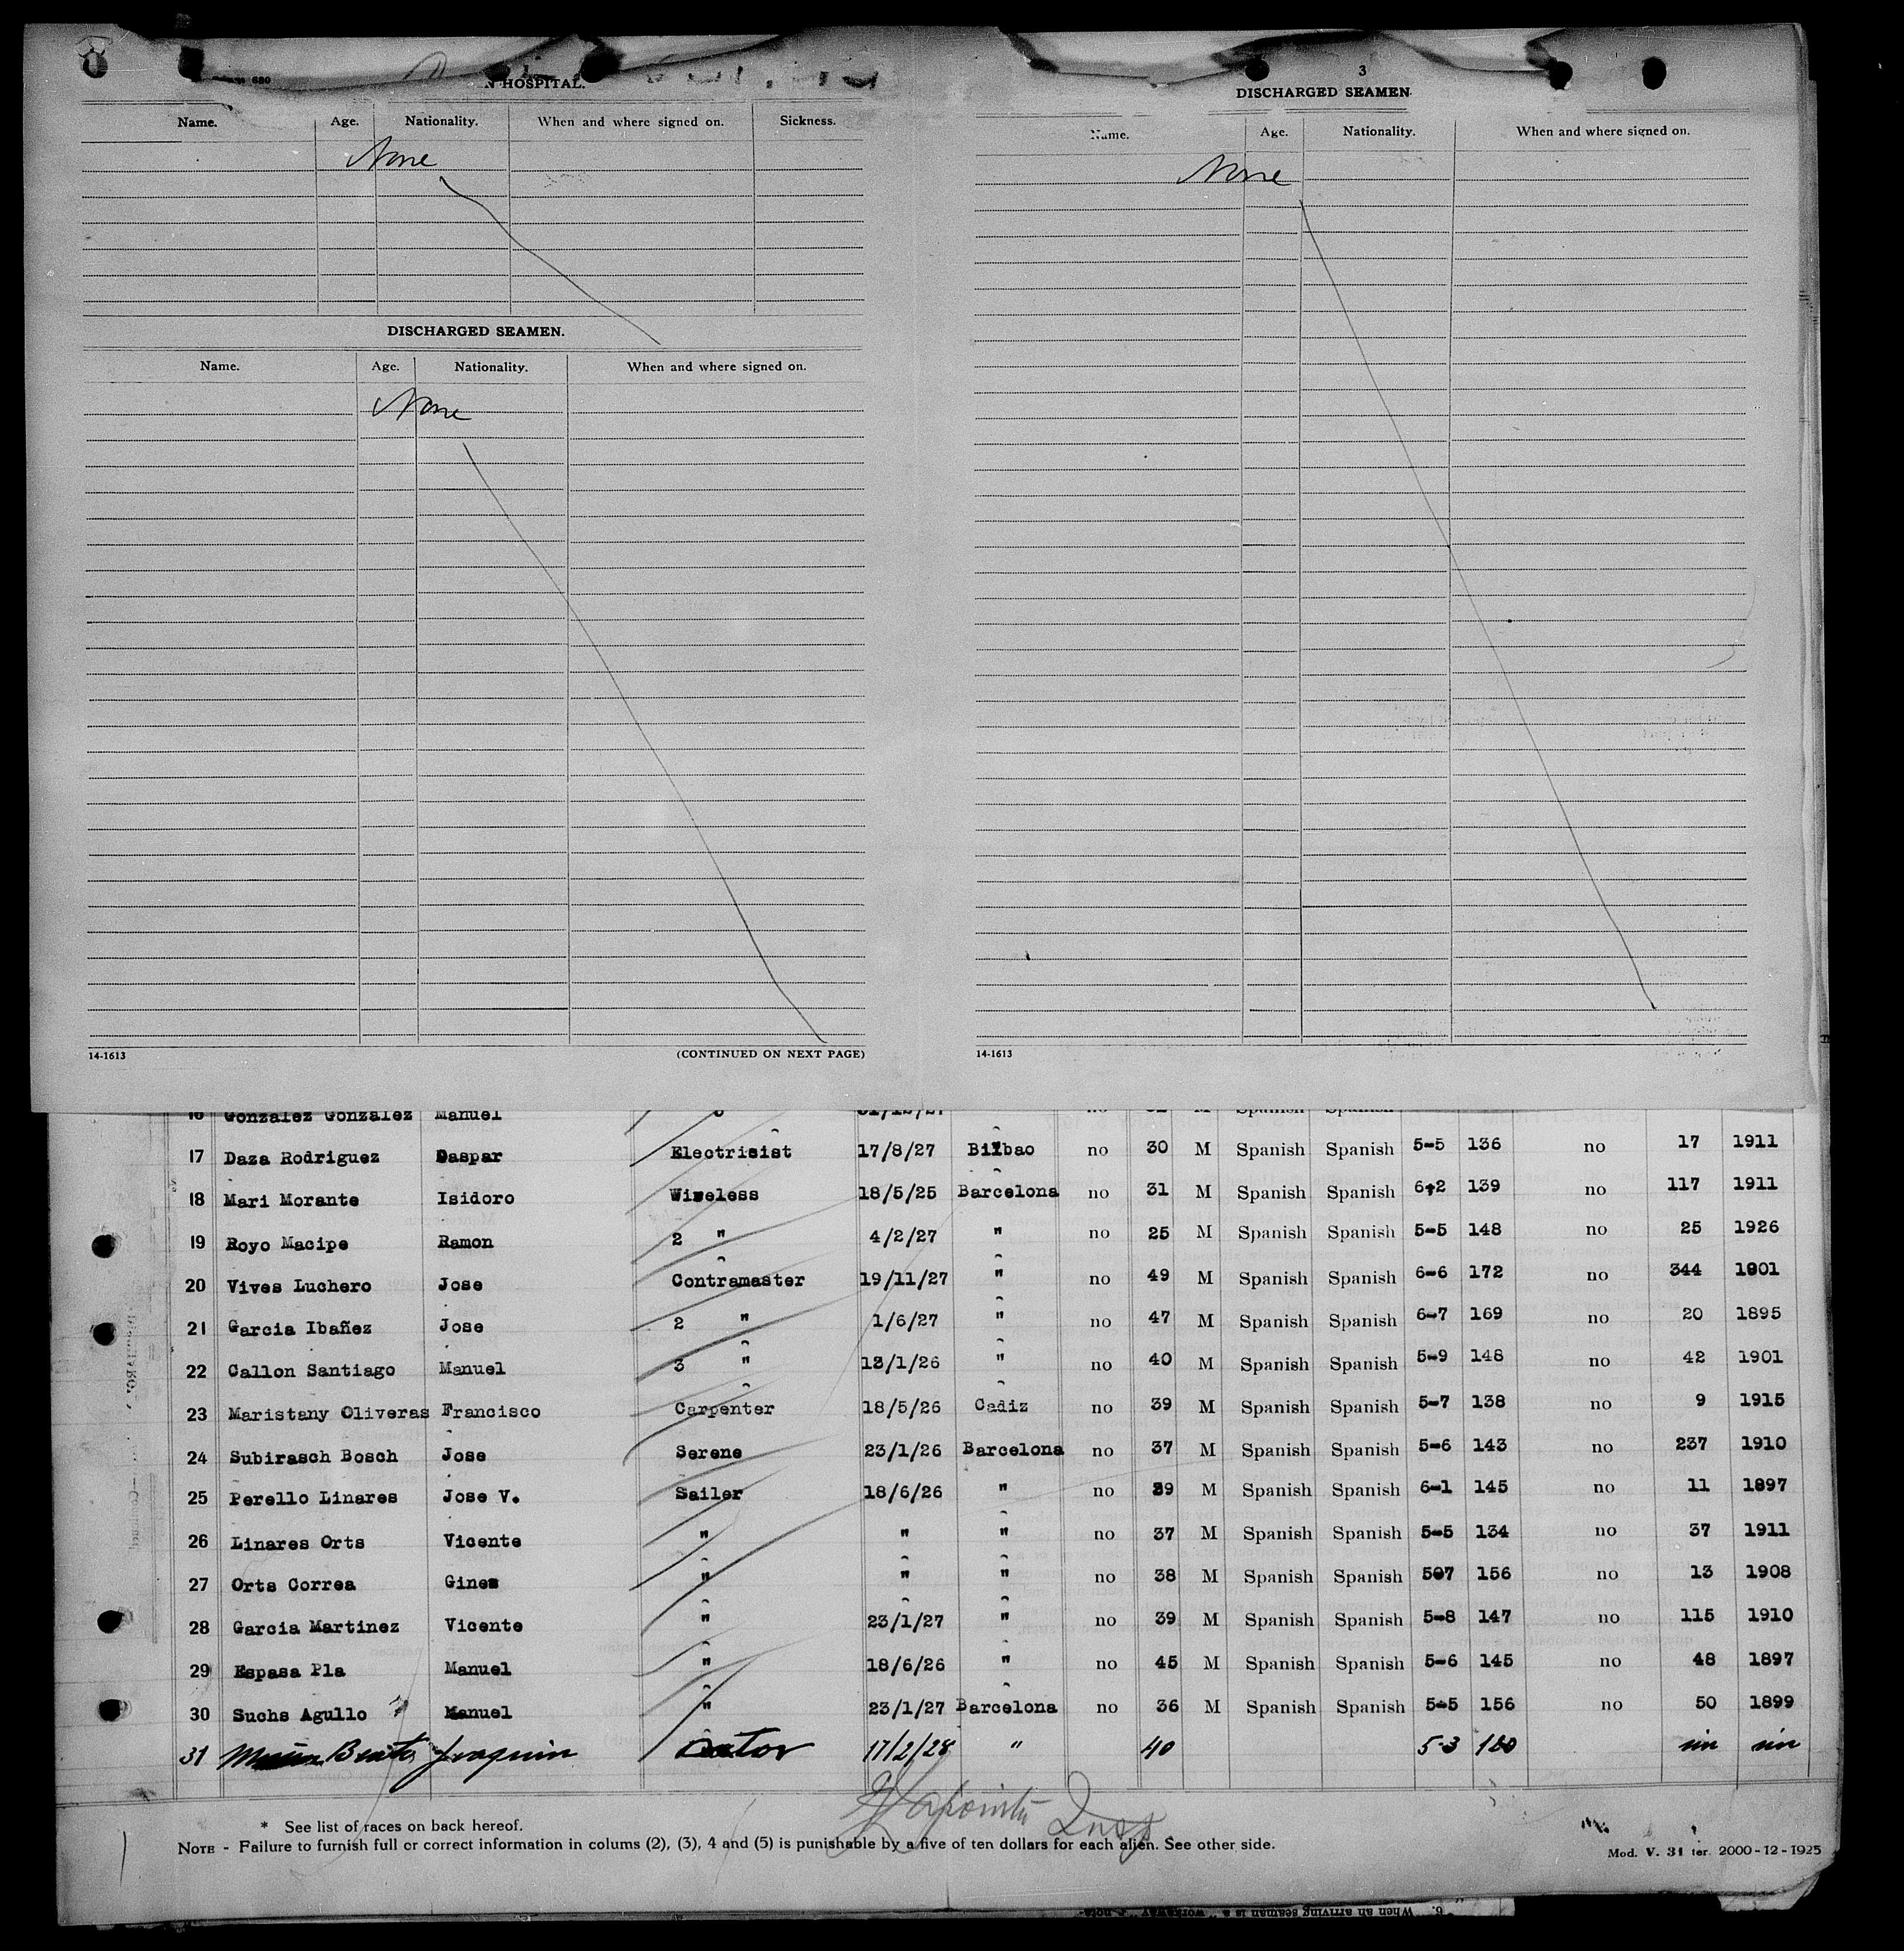 680
N HOSPITAL.
Name. Age. Nationality. When and where signed on. Sickness.
None
DISCHARGED SEAMEN.
Name. Age. Nationality. When and where signed on.
None
14-1613 (CONTINUED ON NEXT PAGE)
3
DISCHARGED SEAMEN
Name. Age. Nationality. When and where signed on.
None
14-1613
16 Gonzalez Gonzalez Manuel
17 Daza Rodriguez Gaspar Electrisist 17/8/27 Bilbao no 30 M Spanish Spanish 5-5 136 no 17 1911
18 Mari Morante Isidoro Wireless 18/5/25 Barcelona no 31 M Spanish Spanish 6-2 139 no 117 1911
19 Royo Macipe Ramon 2 " 4/2/27 " no 25 M Spanish Spanish 5-5 148 no 25 1926
20 Vives Luchero Jose Contramaster 19/11/27 " no 49 M Spanish Spanish 6-6 172 no 344 1901
21 Garcia Ibañez Jose 2 " 1/6/27 " no 47 M Spanish Spanish 6-7 169 no 20 1895
22 Callon Santiago Manuel 3 " 13/1/26 " no 40 M Spanish Spanish 5-9 148 no 42 1901
23 Maristany Oliveras Francisco Carpenter 18/5/26 Cadiz no 39 M Spanish Spanish 5-7 138 no 9 1915
24 Subirasch Bosch Jose Serene 23/1/26 Barcelona no 37 M Spanish Spanish 5-6 143 no 237 1910
25 Perello Linares Jose V. Sailer 18/6/26 " no 39 M Spanish Spanish 6-1 145 no 11 1897
26 Linares Orts Vicente " " " no 37 M Spanish Spanish 5-5 134 no 37 1911
27 Orts Correa Gines " " " no 38 M Spanish Spanish 507 156 no 13 1908
28 Garcia Martinez Vicente " 23/1/27 " no 39 M Spanish Spanish 5-8 147 no 115 1910
29 Espasa Pla Manuel " 18/6/26 " no 45 M Spanish Spanish 5-6 145 no 48 1897
30 Suchs Agullo Manuel " 23/1/27 Barcelona no 36 M Spanish Spanish 5-5 156 no 50 1899
31 Joaquin 17/2/28 " 40 5-3 180
* See list of races on back hereof.
NOTE - Failure to furnish full or correct information in colums (2), (3), 4 and (5) is punishable by a five of ten dollars for each alien. See other side.
Mod. V. 31 ter. 2000-12-1925
6. When an arriving seaman is a "workaway"